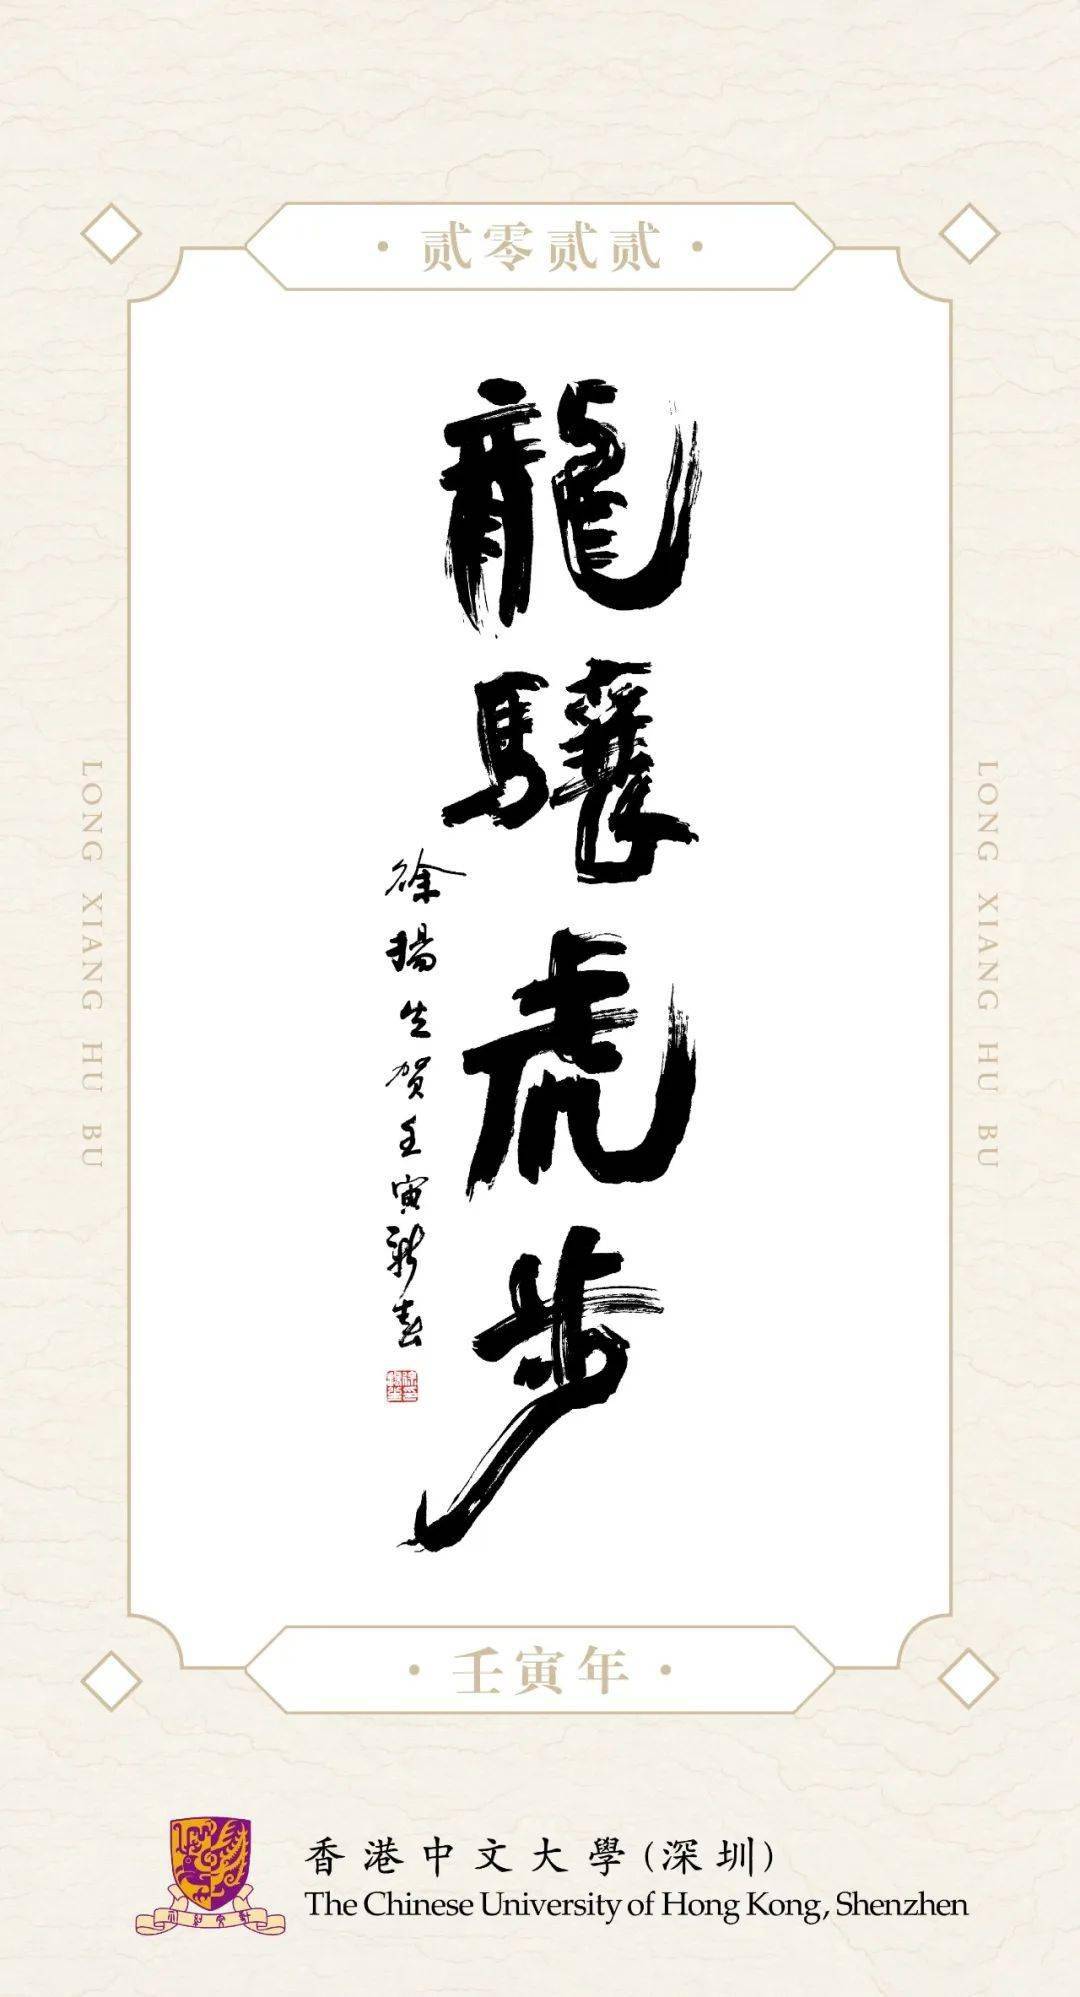 贰零贰贰
龍驤虎步
徐揚生賀壬寅新春
LONG XIANG HU BU
LONG XIANG HU BU
壬寅年
香港中文大學(深圳)
The Chinese University of Hong Kong, Shenzhen